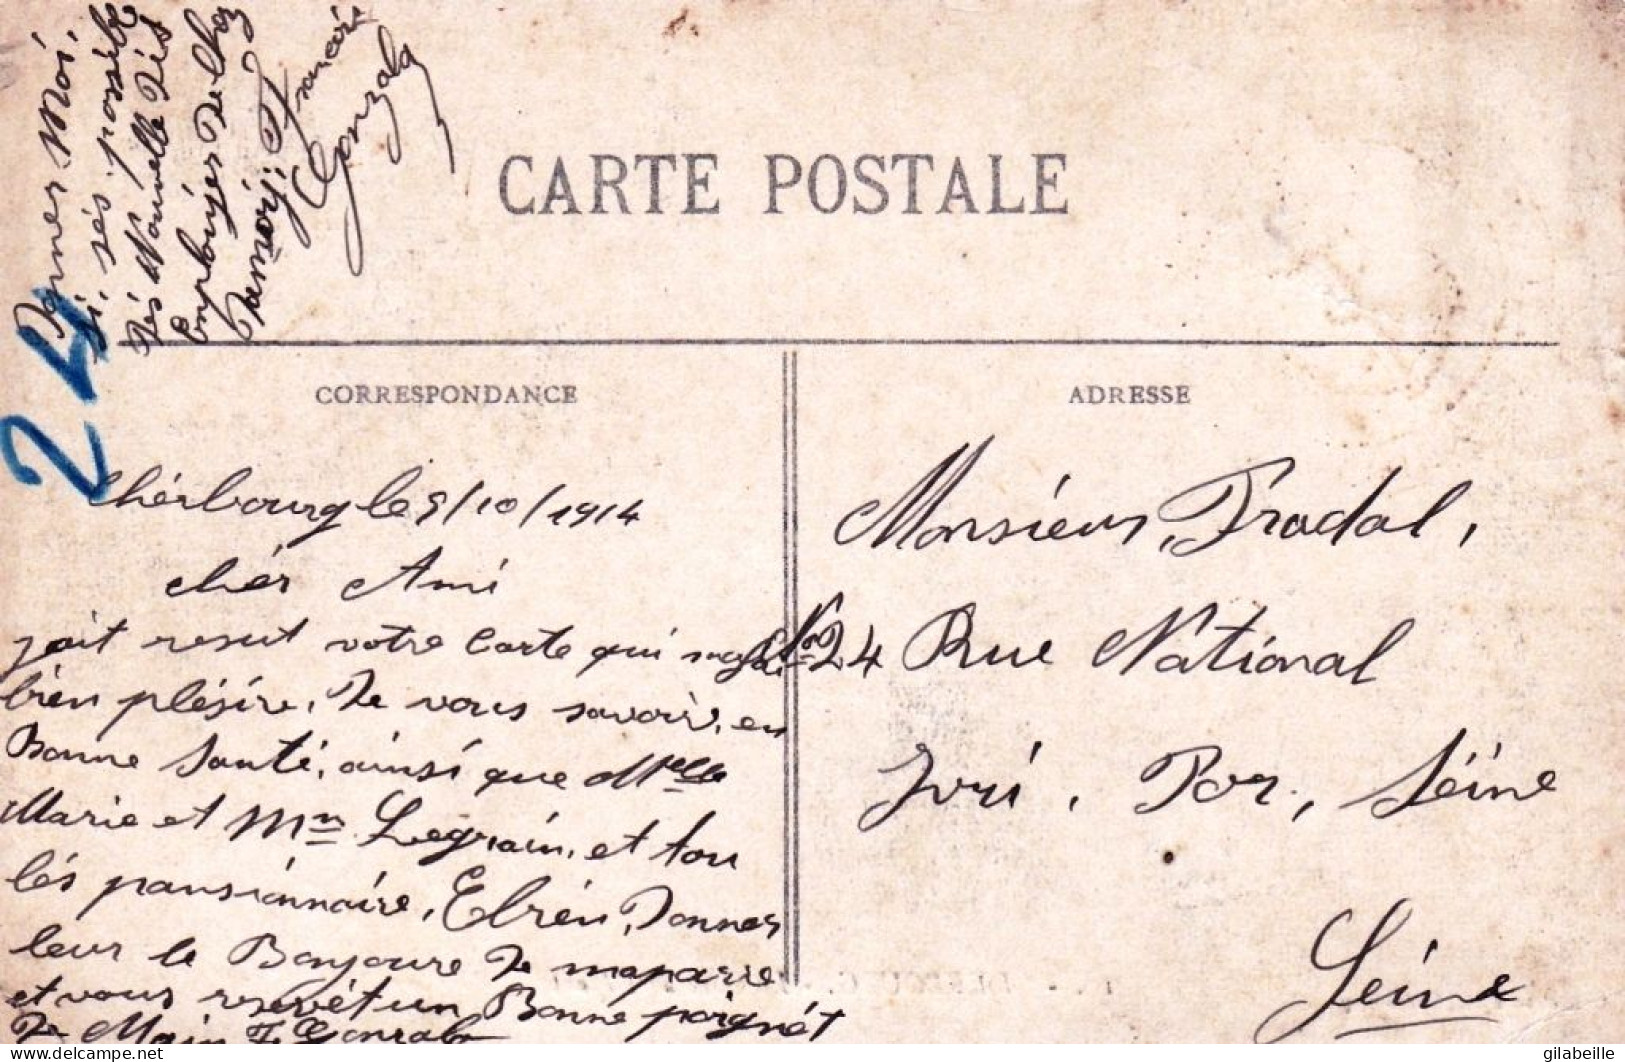 Donner Moi,
si sés possible
dés Nouvelle dés
Employer de Chez
Gonzala
CARTE POSTALE
24
CORRESPONDANCE
ADRESSE
Chérbourg le 9/10/1914
chér Ami
jait resut votre Carte qui
bién plésire, De vous savoir, en
Bonne Santé, ainsi que Melle
Marie et Mm Legrain, et tou
lés pansiónnaire, Donner
leur le Bonjoure De maparre
et vous resevét un Bonne poignét
De Main F Gonzala
Monsieur, Pradal,
No 24 Rue National
Ivri, Por, Séine
Séine
gilabeille